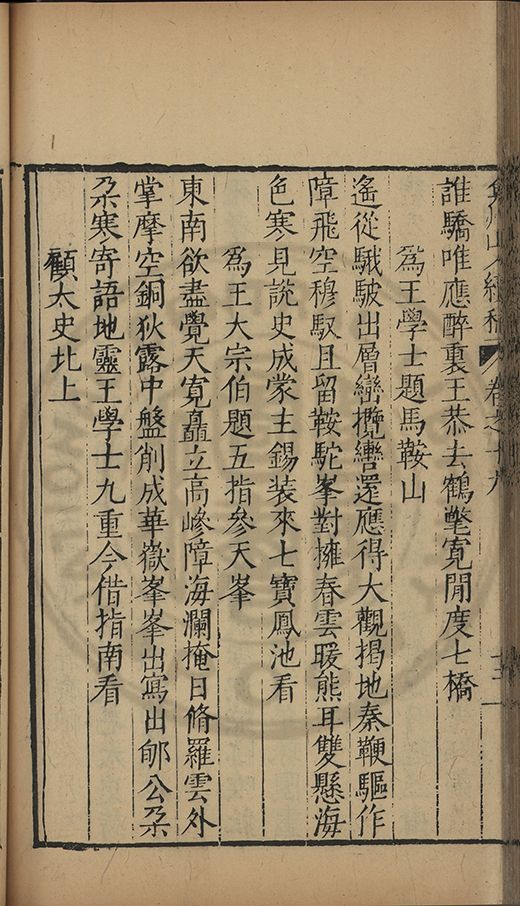 弇州山人續稿 卷之十九 十二
誰驕唯應醉裏王恭去鶴氅寬閒度七橋
為王學士題馬鞍山
遙從駊騀出層巒攬轡還應得大觀揭地秦鞭驅作
障飛空穆馭且留鞍駝峯對擁春雲暖熊耳雙懸海
色寒見說史成蒙主錫装來七寶鳳池看
為王大宗伯題五指參天峯
東南欲盡覺天寬矗立高嵾障海瀾掩日脩羅雲外
掌摩空銅狄露中盤削成華嶽峯峯出寫出郇公朶
朶寒寄語地靈王學士九重今借指南看
顧太史北上